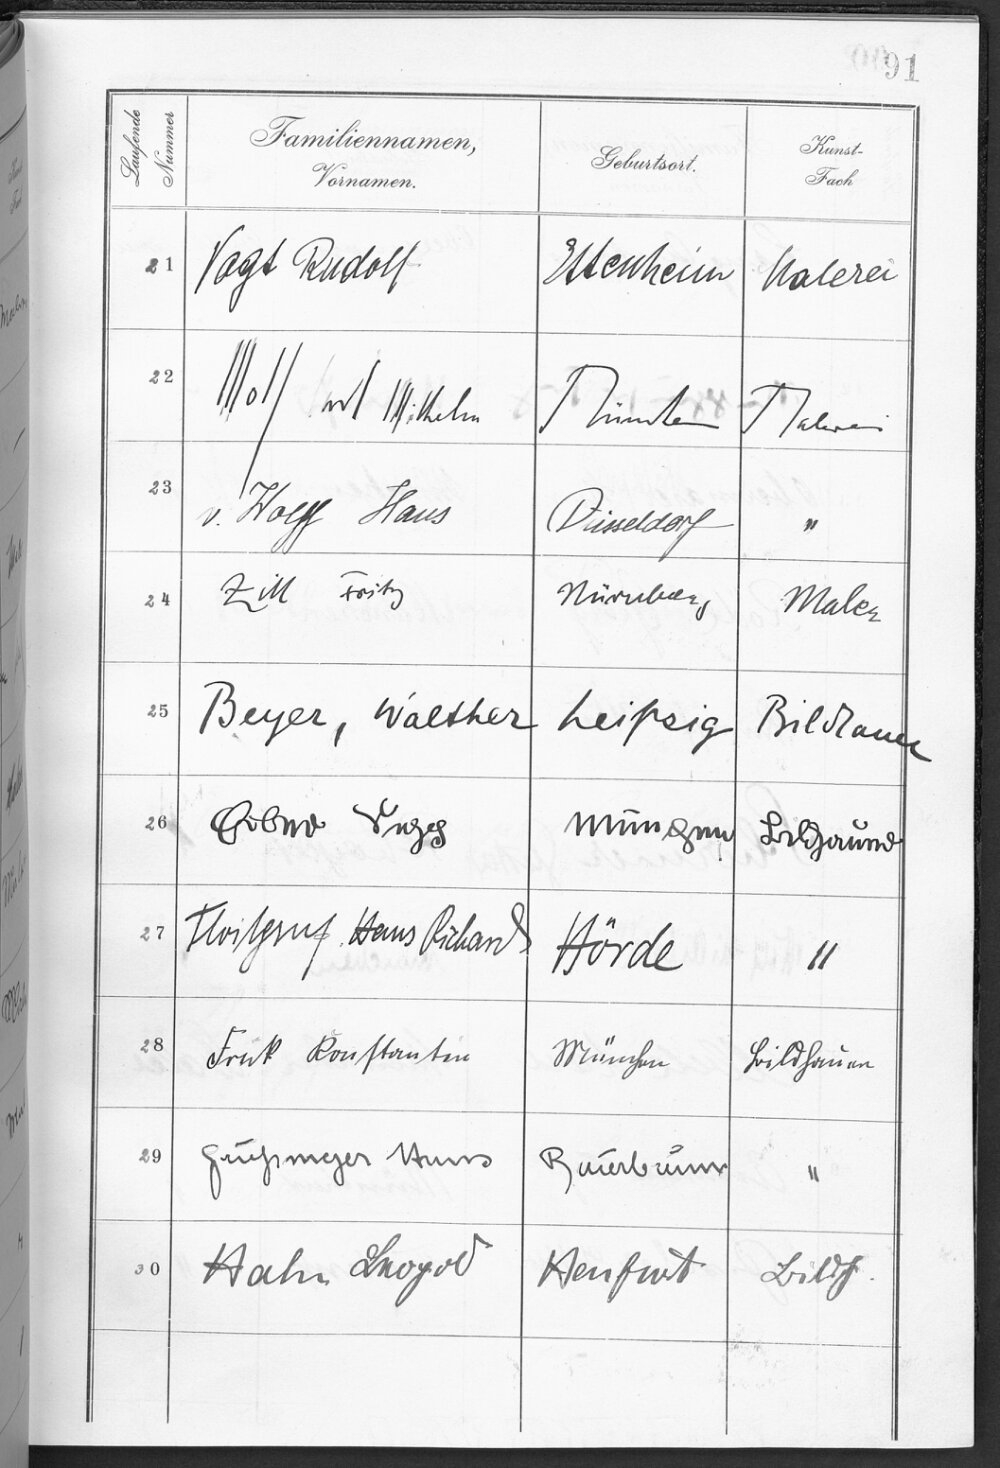 91
Laufende Nummer
Familiennamen, Vornamen.
Geburtsort.
Kunst-Fach
21 Vogt Rudolf Ettenheim Malerei
22 Wolf Wilhelm München Malerei
23 v. Wolff Hans Düsseldorf "
24 Zill Fritz Nürnberg Maler
25 Beyer, Walther Leipzig Bildhauer
26 München Bildhauer
27 Hans Richard Hörde "
28 Frick Konstantin München Bildhauer
29 Hans "
30 Hahn Leopold Bildh.